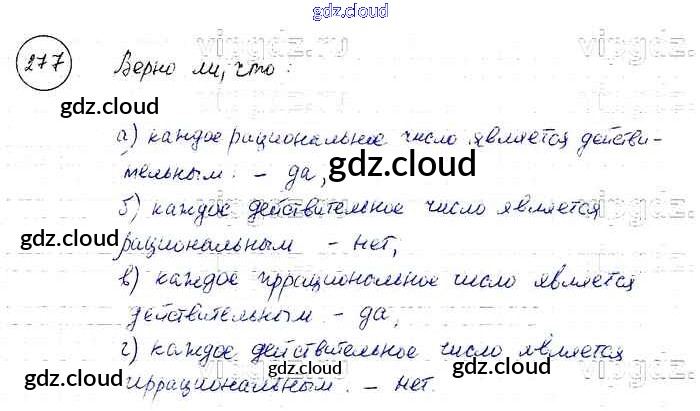 gdz.cloud
277 Верно ли, что:
gdz.cloud
а) каждое рациональное число является действи-
тельным. - да,
gdz.cloud
б) каждое действительное число является
gdz.cloud
рациональным - нет,
в) каждое иррациональное число является
gdz.cloud
действительным - да,
gdz.cloud
г) каждое действительное число является
gdz.cloud
иррациональным. - нет.
gdz.cloud